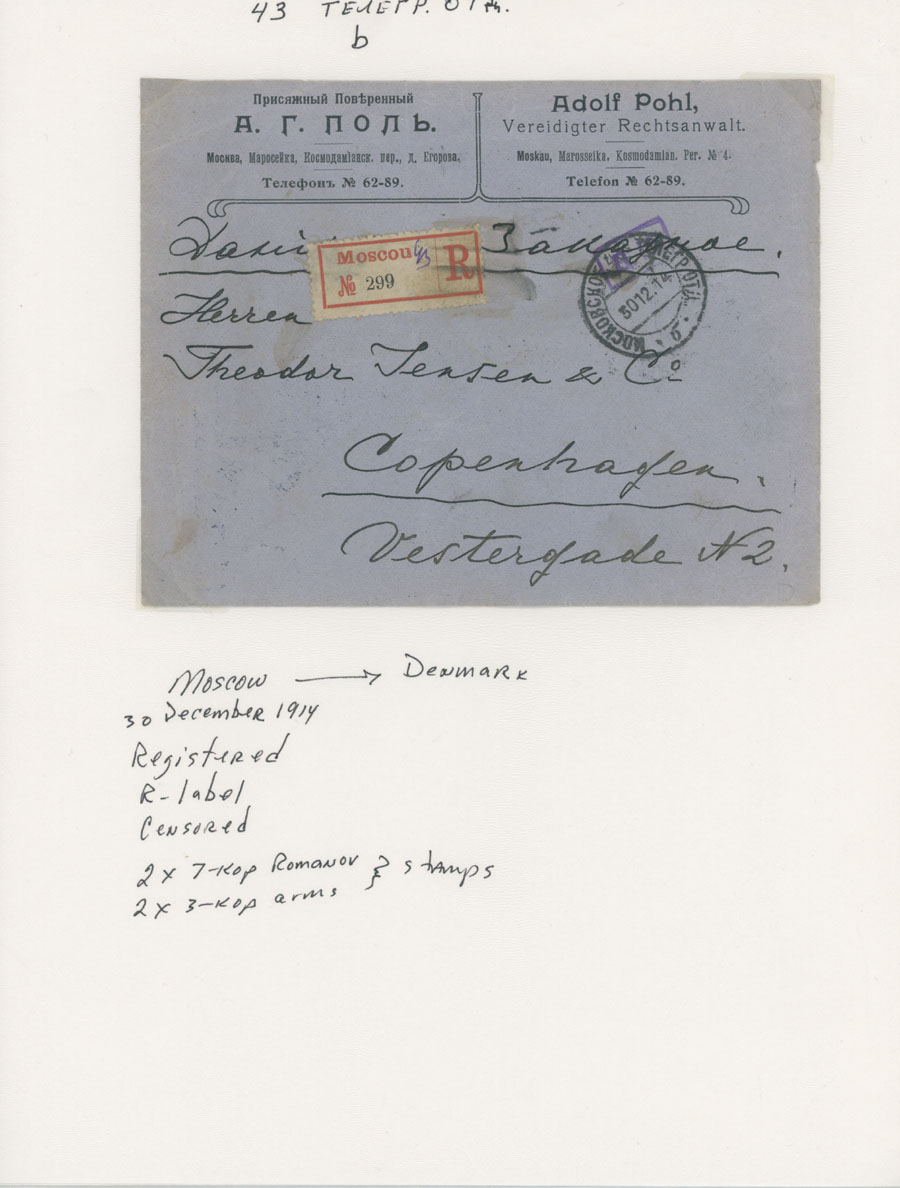 43 ТЕЛЕГР. ОТД.
b
Присяжный Повѣренный
А. Г. ПОЛЬ.
Москва, Маросейка, Космодамiанск. пер., д. Егорова.
Телефонъ № 62-89.
Adolf Pohl,
Vereidigter Rechtsanwalt.
Moskau, Marosseika, Kosmodamian. Per. № 4.
Telefon № 62-89.
Заказное.
Moscou
R
№ 299
30 12. 14
Herren
Theodor Jensen & Co
Copenhagen.
Vestergade N 2.
Moscow → Denmark
30 December 1914
Registered
R-label
Censored
2 x 7-kop Romanov } stamps
2 x 3-kop arms